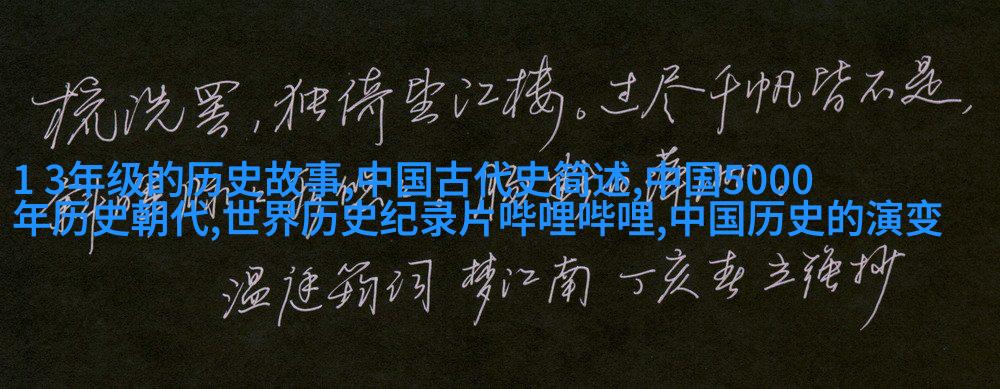 梳洗罢,独倚望江楼。过尽千帆皆不是,
1 3年级的历史故事,中国古代史简述,中国5000
年历史朝代,世界历史纪录片哔哩哔哩,中国历史的演变
温庭筠词 梦江南 丁亥春 立强抄